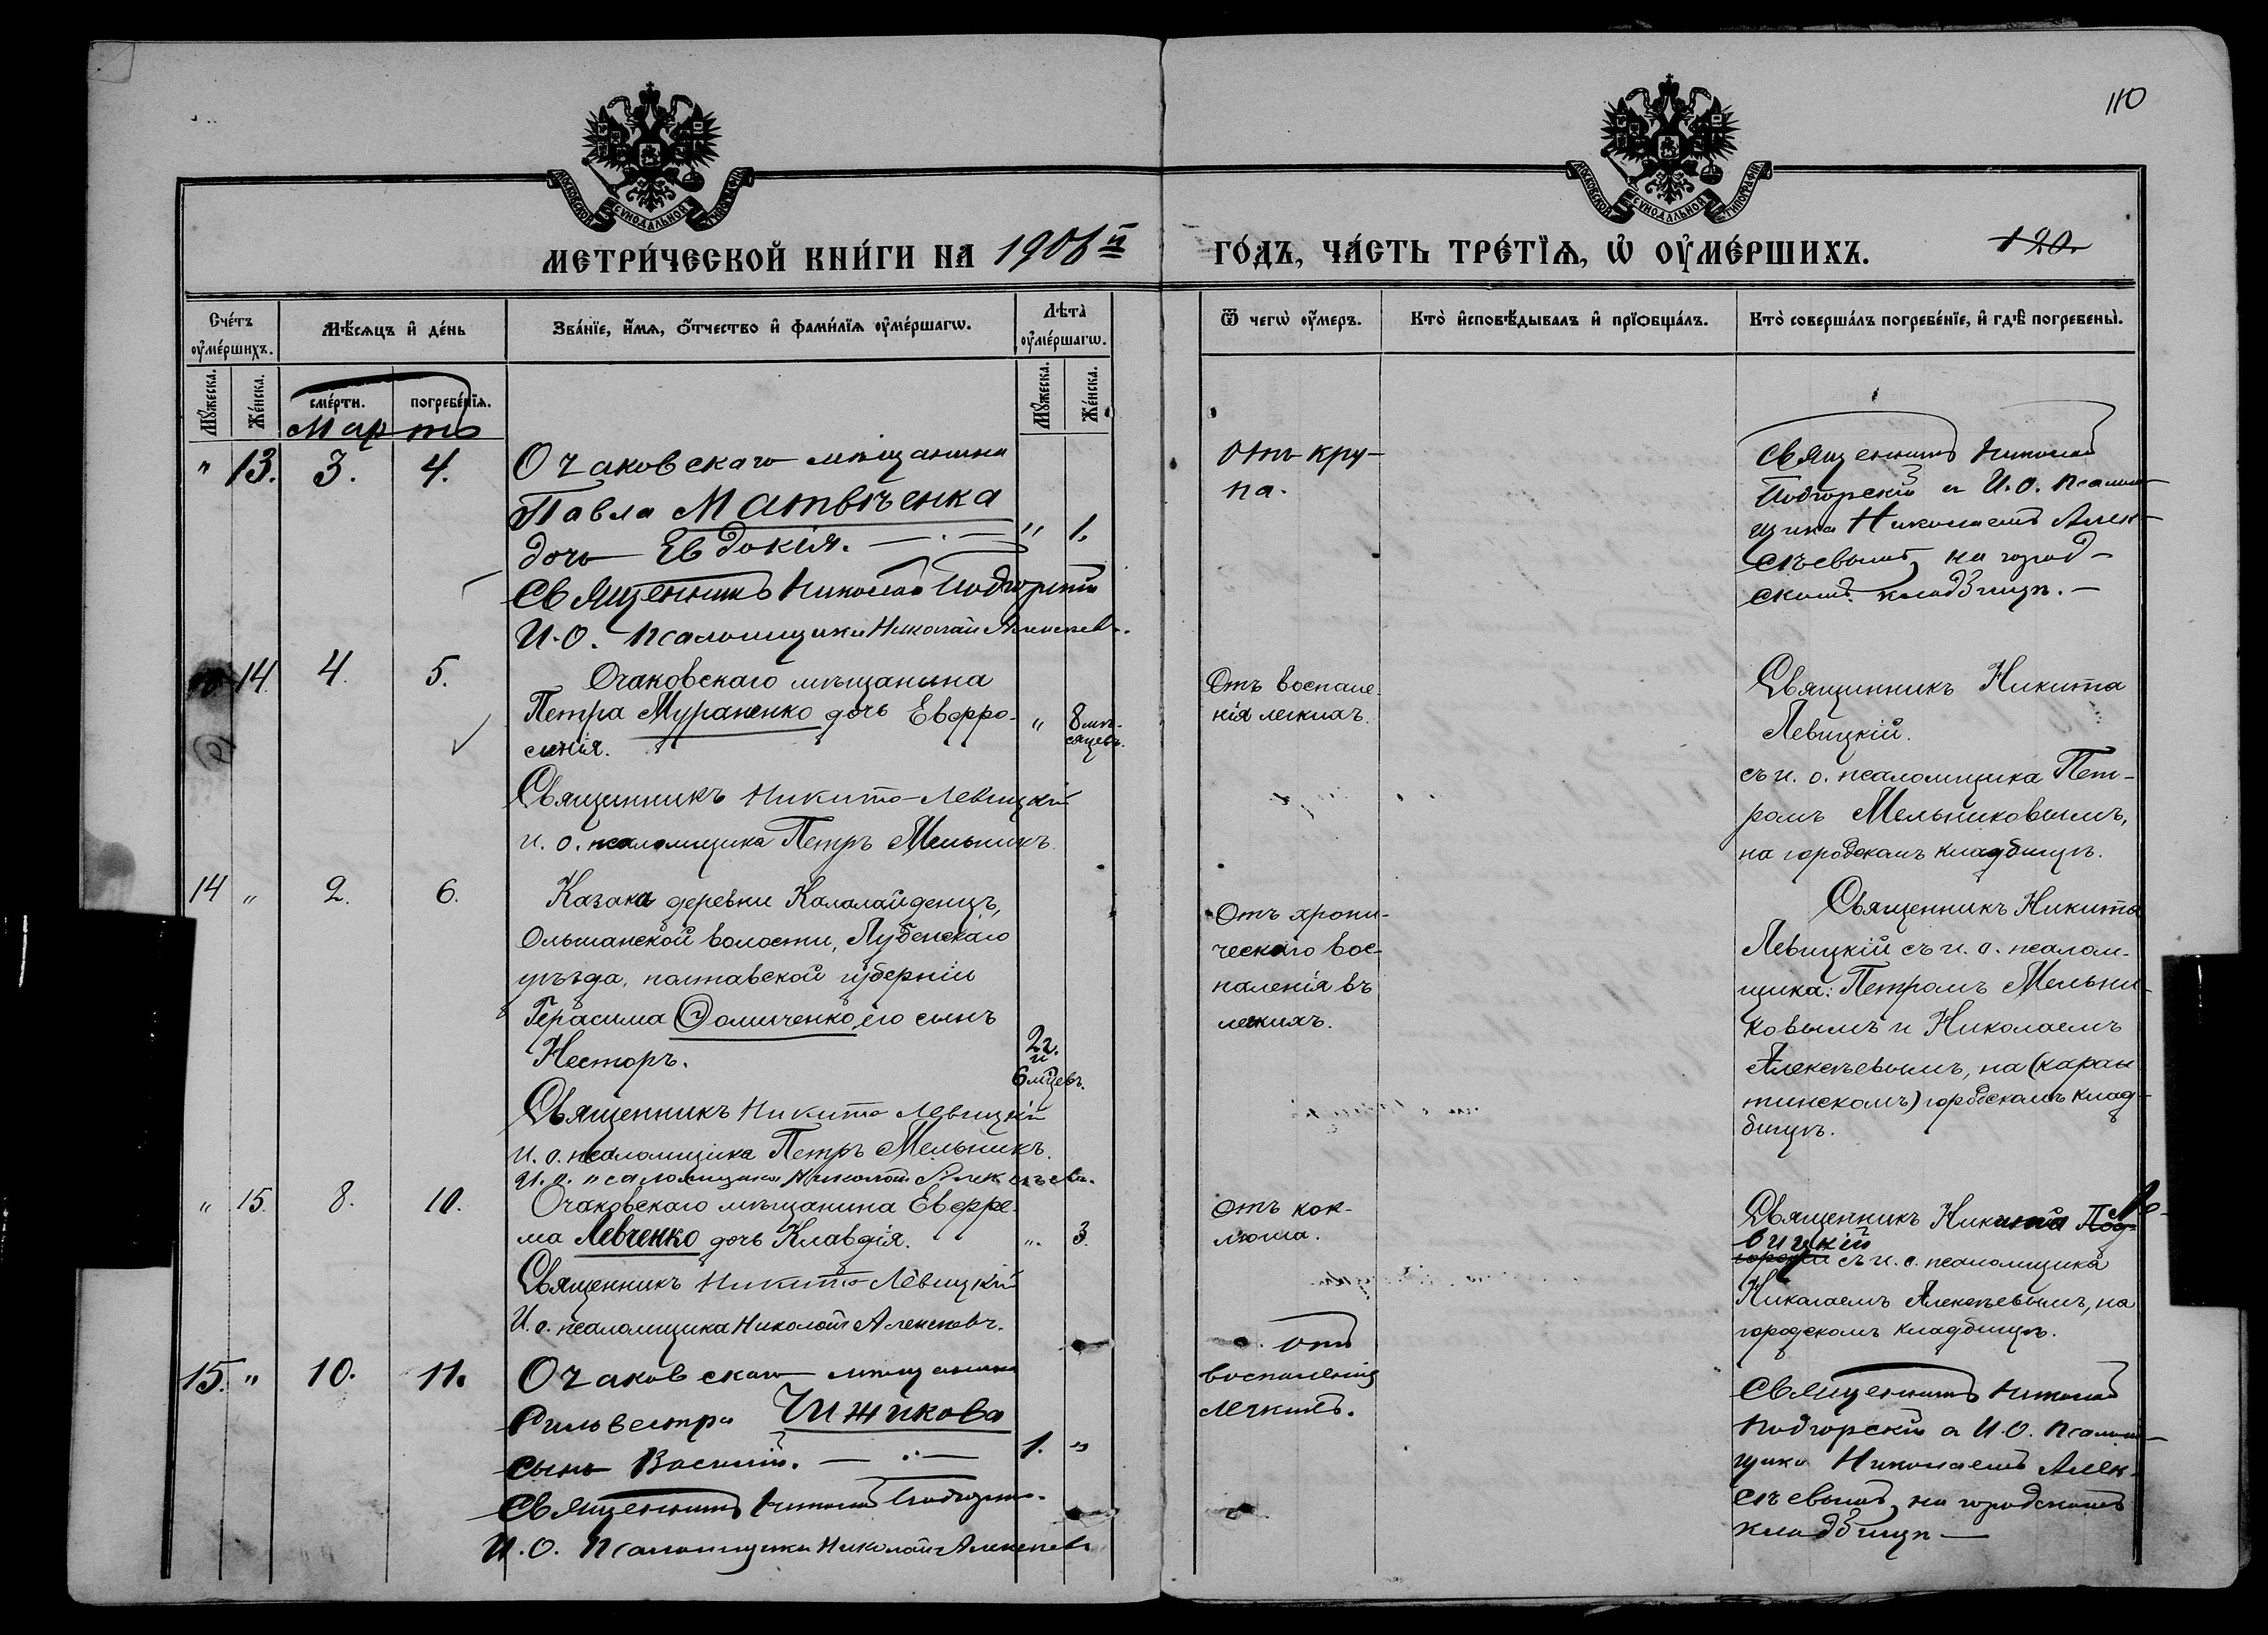 110
МОСКОВСКОЙ СѴНОДАЛЬНОЙ ТИПОГРАФІИ
МОСКОВСКОЙ СѴНОДАЛЬНОЙ ТИПОГРАФІИ
МЕТРИ́ЧЕСКОЙ КНИ́ГИ НА 1908й ГО́ДЪ, ЧА́СТЬ ТРЕ́ТЇѦ, Ѡ҆ ОУ҆МЕ́РШИХЪ.
120.
Сче́тъ оу҆ме́ршихъ.
Мѣ́сѧцъ и҆ де́нь
Зва́нїе, и҆́мѧ, ѻ҆́тчество и҆ фами́лїѧ оу҆ме́ршагѡ.
Лѣта̀ оу҆ме́ршагѡ.
Ѿ чегѡ̀ оу҆́меръ.
Кто̀ и҆сповѣ́дывалъ и҆ прїѡбща́лъ.
Кто̀ соверша́лъ погребе́нїе, и҆ гдѣ̀ погребены̀.
Мꙋ́жеска.
Же́нска.
сме́рти.
погребе́нїѧ.
Мꙋ́жеска.
Же́нска.
Мартъ
" 13. 3. 4.
Очаковскаго мѣщанина
Павла Матвѣенка
дочь Евдокія. — . — " 1.
Священникъ Николай Подгорскій
И.О. Псаломщика Николай Алексѣевъ.
Отъ кру-
па.
Священникъ Николай
Подгорскій и И.О. Псалом-
щика Николаемъ Алек-
сѣевымъ, на город-
скомъ кладбищѣ. —
14. 4. 5.
Очаковскаго мѣщанина
Петра Мураненко дочь Евфро- " 8 мѣ-
синія. сяцевъ.
Священникъ Никита Левицкій
и. о. псаломщика Петръ Мельникъ.
Отъ воспале-
нія легкихъ.
Священникъ Никита
Левицкій.
съ и. о. псаломщика Пет-
ромъ Мельниковымъ,
на городскомъ кладбищѣ.
14 " 2. 6.
Казака деревни
Ольшанской волости, Лубенскаго
уѣзда, полтавской губерніи
Герасима его сынъ
Несторъ. 2 г.
и
6 мѣцевъ.
Священникъ Никита Левицкій
и. о. псаломщика Петръ Мельникъ.
И. о. псаломщика Николай Алексѣевъ.
Отъ хрони-
ческаго вос-
паленія въ
легкихъ.
Священникъ Никита
Левицкій съ и. о. псалом-
щика: Петромъ Мельни-
ковымъ и Николаемъ
Алексѣевымъ, на (каран
тинскомъ) городскомъ клад-
бищѣ.
" 15. 8. 10.
Очаковскаго мѣщанина Евфре-
ма Левченко дочь Клавдія. ". 3.
Священникъ Никита Левицкій
И. о. псаломщика Николай Алексѣевъ.
Отъ кок-
люша.
Священникъ Никита Под Ле-
вицкій
горскій съ и. о. псаломщика
Николаемъ Алексѣевымъ, на
городскомъ кладбищѣ.
15. " 10. 11.
Очаковскаго мѣщанина
Сильвестра Чижикова
сынъ Василій. — . — 1. "
Священникъ Николай Подгорскій.
И.О. Псаломщика Николай Алексѣевъ
отъ
воспаленія
легкихъ.
Священникъ Николай
Подгорскій и И.О. Псалом-
щика Николаемъ Алек-
сѣевымъ, на городскомъ
кладбищѣ —